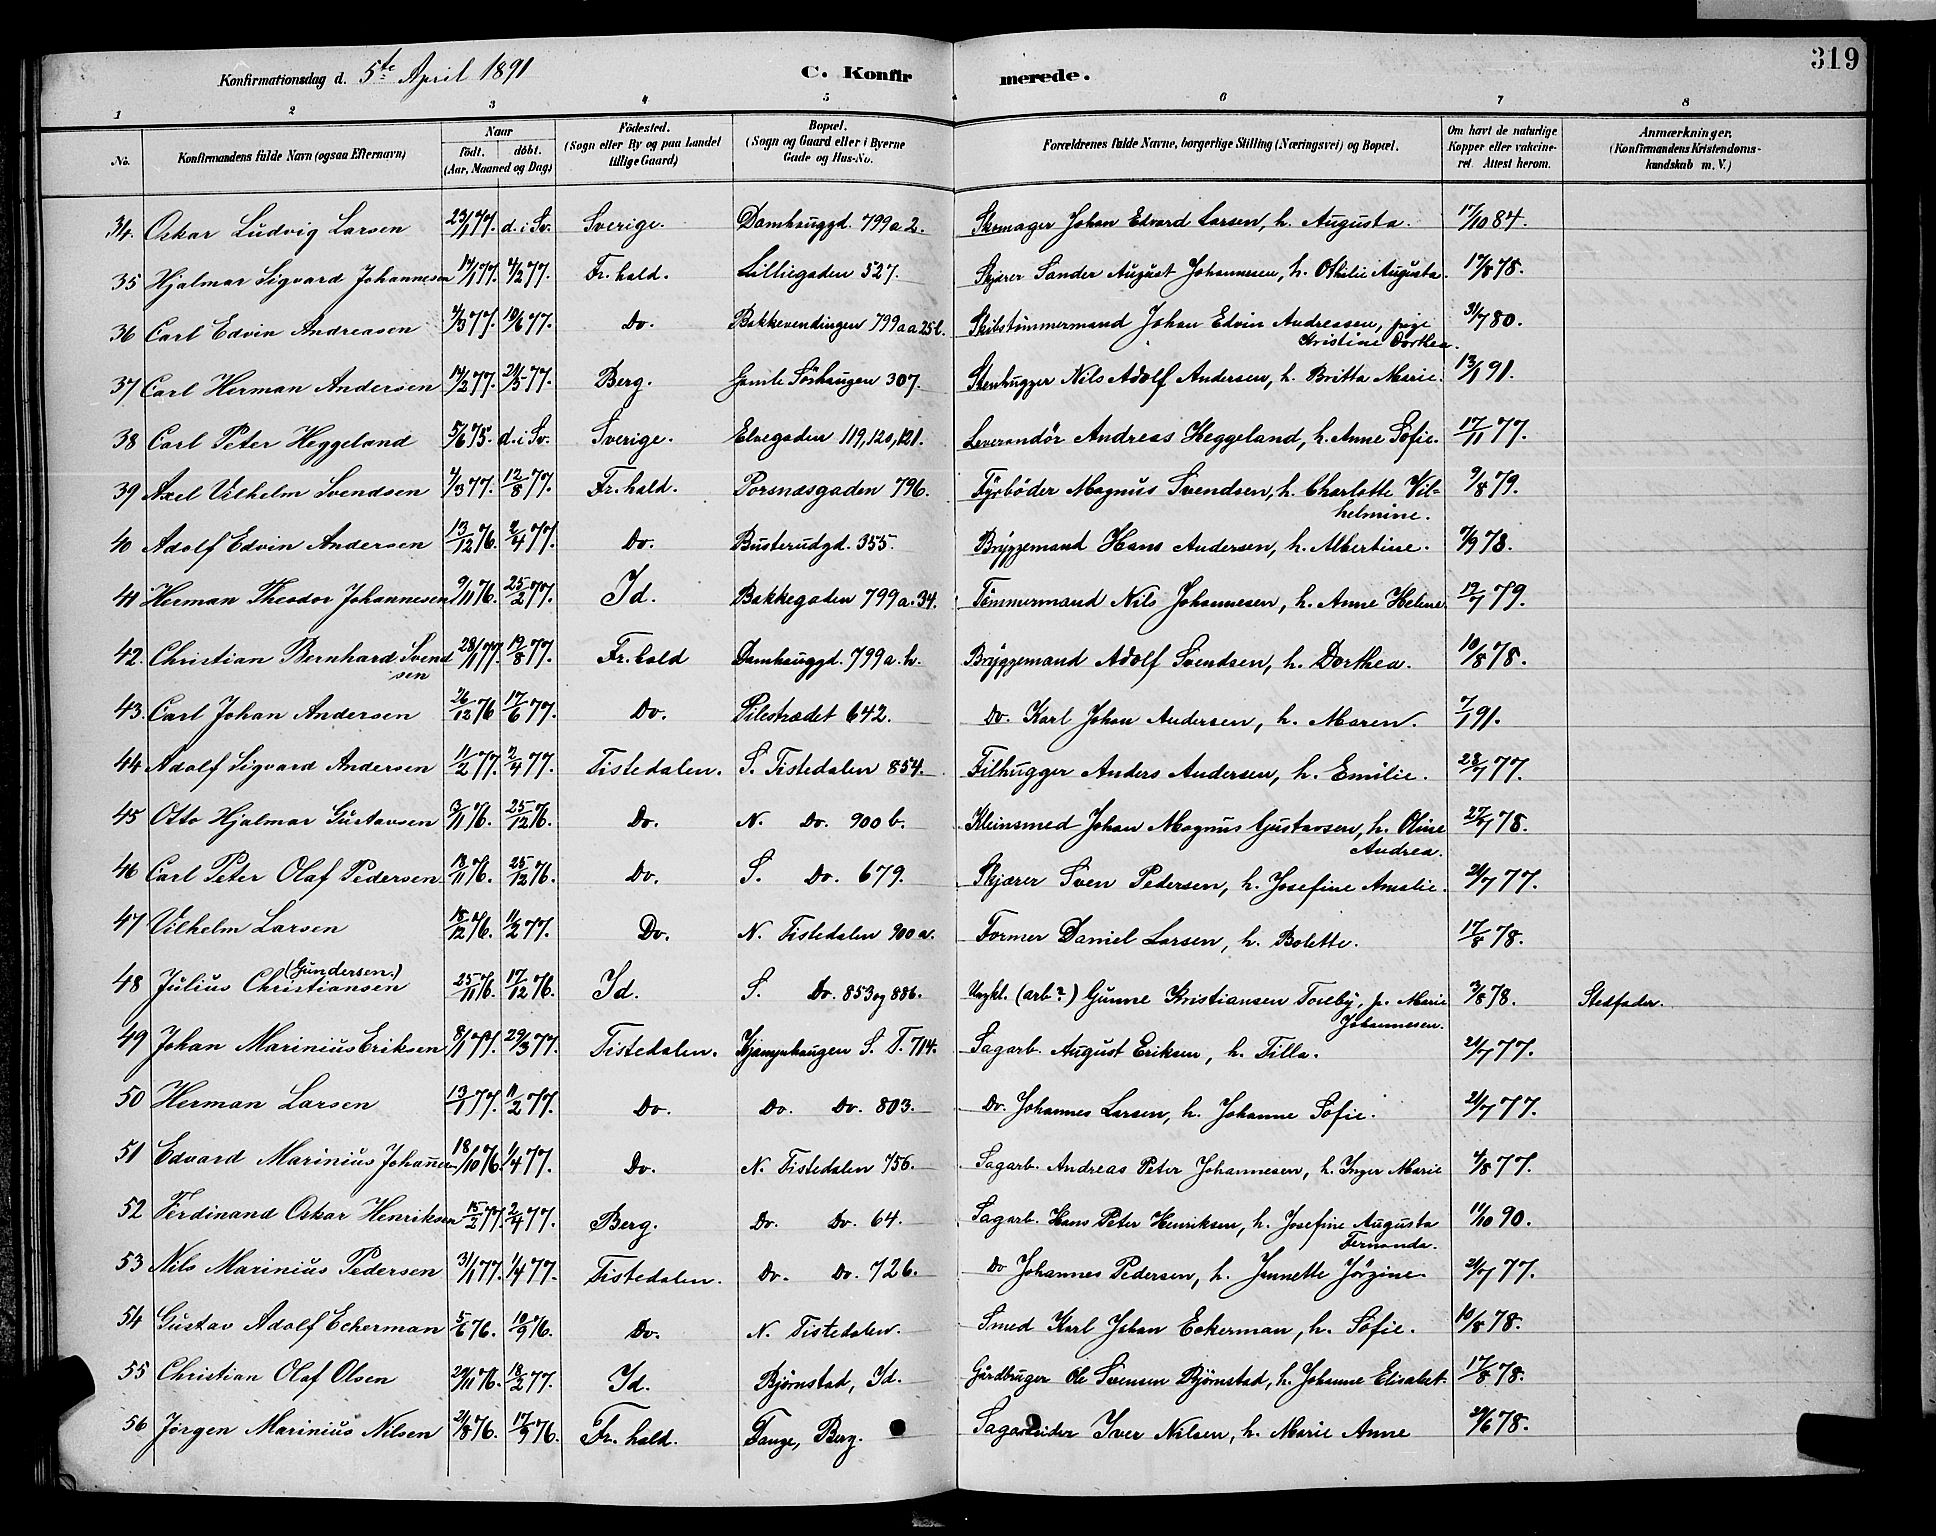 319
Konfirmationsdag d. 5te April 1891 C. Konfir merede.
1 2 3 4 5 6 7 8
No. Konfirmandens fulde Navn (ogsaa Efternavn) Naar födt. döbt. (Aar, Maaned og Dag) Födested. (Sogn eller By og paa Landet tillige Gaard) Bopæl. (Sogn og Gaard eller i Byerne Gade og Hus-No. Forældrenes fulde Navne, borgerlige Stilling (Næringsvei) og Bopæl. Om havt de naturlige Kopper eller vakcineret. Attest herom. Anmærkninger. (Konfirmandens Kristendomskundskab m. V.)
34. Oskar Ludvig Larsen 23/1 77. d. i Sv. Sverige. Damhauggd. 799 a 2. Skomager Johan Edvard Larsen, h. Augusta. 17/10 84.
35 Hjalmar Sigvard Johannesen 14/1 77. 4/2 77. Fr. hald. Lilliegaden 527. Skjærer Sander August Johannesen, h. Othilie Augusta. 17/8 78.
36 Carl Edvin Andreasen 4/3 77. 10/6 77. Do. Bakkevendingen 799 a a 25 b. Skibstömmermand Johan Edvin Andreasen, pige 31/7 80.
Kristine Dorthea.
37 Carl Herman Andersen 14/2 77. 21/5 77. Berg. Gamle Sörhaugen 307. Stenhugger Nils Adolf Andersen, h. Britta Marie. 13/1 91.
38 Carl Peter Heggeland 5/6 75. d. i Sv. Sverige. Elvegaden 119, 120, 121. Leverandör Andreas Heggeland, h. Anne Sofie. 17/11 77.
39 Axel Vilhelm Svendsen 4/3 77. 12/8 77. Fr. hald. Porsnæsgaden 796. Fyrböder Magnus Svendsen, h. Charlotte Vil= 9/8 79.
helmine.
40 Adolf Edvin Andersen 13/12 76. 2/4 77. Do. Busterudgd. 355. Bryggemand Hans Andersen, h. Albertine. 7/9 78.
41 Herman Theodor Johannesen 9/11 76. 25/2 77. Id. Bakkegaden 799 a. 34. Tömmermand Nils Johannesen, h. Anne Helene. 12/7 79.
42. Christian Bernhard Svend 28/1 77. 19/8 77. Fr. hald Damhauggd. 799 a. h. Bryggemand Adolf Svendsen, h. Dorthea. 10/8 78.
sen
43. Carl Johan Andersen 26/12 76 17/6 77. Do. Pilestrædet 642. Do. Karl Johan Andersen, h. Maren. 7/1 91.
44 Adolf Sigvard Andersen 11/2 77. 2/4 77. Tistedalen. S. Tistedalen 854. Filhugger Anders Andersen, h. Emilie. 28/7 77.
45 Otto Hjalmar Gustavsen 3/11 76. 25/12 76. Do. N. Do. 900 b. Kleinsmed Johan Magnus Gustavsen, h. Oline 27/7 78.
Andrea.
46 Carl Peter Olaf Pedersen 18/11 76. 25/12 76. Do. S. Do. 679. Skjærer Sven Pedersen, h. Josefine Amalie. 21/7 77.
47 Vilhelm Larsen 18/12 76. 11/2 77. Do. N. Tistedalen 900 a. Former Daniel Larsen, h. Bolette. 17/8 78.
(Gundersen.)
48 Julius Christiansen 25/11 76. 17/12 76. Id. S. Do. 853 og 886. Ungkl. (arb?) Gunne Kristiansen Toreby, p. Marie 3/8 78. Stedfader.
Johannesen.
49 Johan Marinius Eriksen 8/1 77. 29/3 77. Tistedalen. Kjæmpehaugen S. T. 714. Sagarb. August Eriksen, h. Tilla. 21/7 77.
50 Herman Larsen 13/1 77. 11/2 77. Do. Do. Do. 803. Do. Johannes Larsen, h. Johanne Sofie. 21/7 77.
51 Edvard Marinius Johannesen 18/10 76. 1/4 77. Do. N. Tistedalen 756. Sagarb. Andreas Peter Johannesen, h. Inger Marie 4/8 77.
52 Ferdinand Oskar Henriksen 15/2 77. 2/4 77. Berg. Do. Do. 64. Sagarb. Hans Peter Henriksen, h. Josefine Augusta 11/10 90.
Fernanda.
53 Nils Marinius Pedersen 31/1 77. 1/4 77. Tistedalen. Do. Do. 726. Do Johannes Pedersen, h. Jennette Jörgine. 21/7 77.
54 Gustav Adolf Eckerman 5/6 76. 10/9 76. Do. N. Tistedalen. Smed Karl Johan Eckerman, h. Sofie. 10/8 78.
55 Christian Olaf Olsen 29/11 76. 18/2 77. Id. Bjørnstad, Id. Gårdbruger Ole Svensen Bjørnstad, h. Johanne Elisabet. 17/8 78.
56 Jørgen Marinius Nilsen 21/8 76. 17/9 76. Fr. hald. Tange, Berg. Sagarbeider Iver Nilsen, h. Marie Anne 29/6 78.